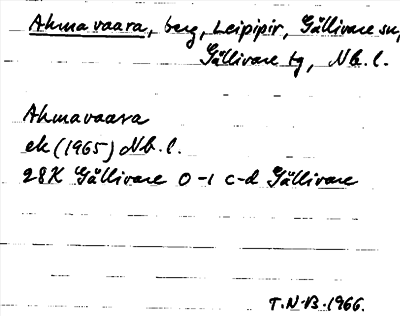 Ahmavaara, berg, Leipipir, Gällivare sn,
Gällivare tg, Nb. l.
Ahmavaara
ek (1965) Nb. l.
28K Gällivare 0-1 c-d Gällivare
T.N-B. 1966.